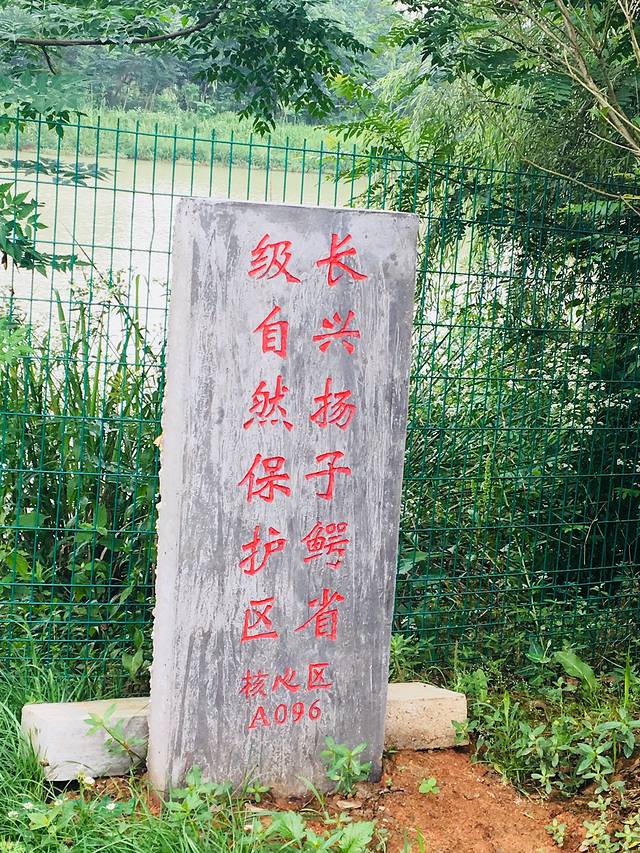 长兴扬子鳄省
级自然保护区
核心区
A096